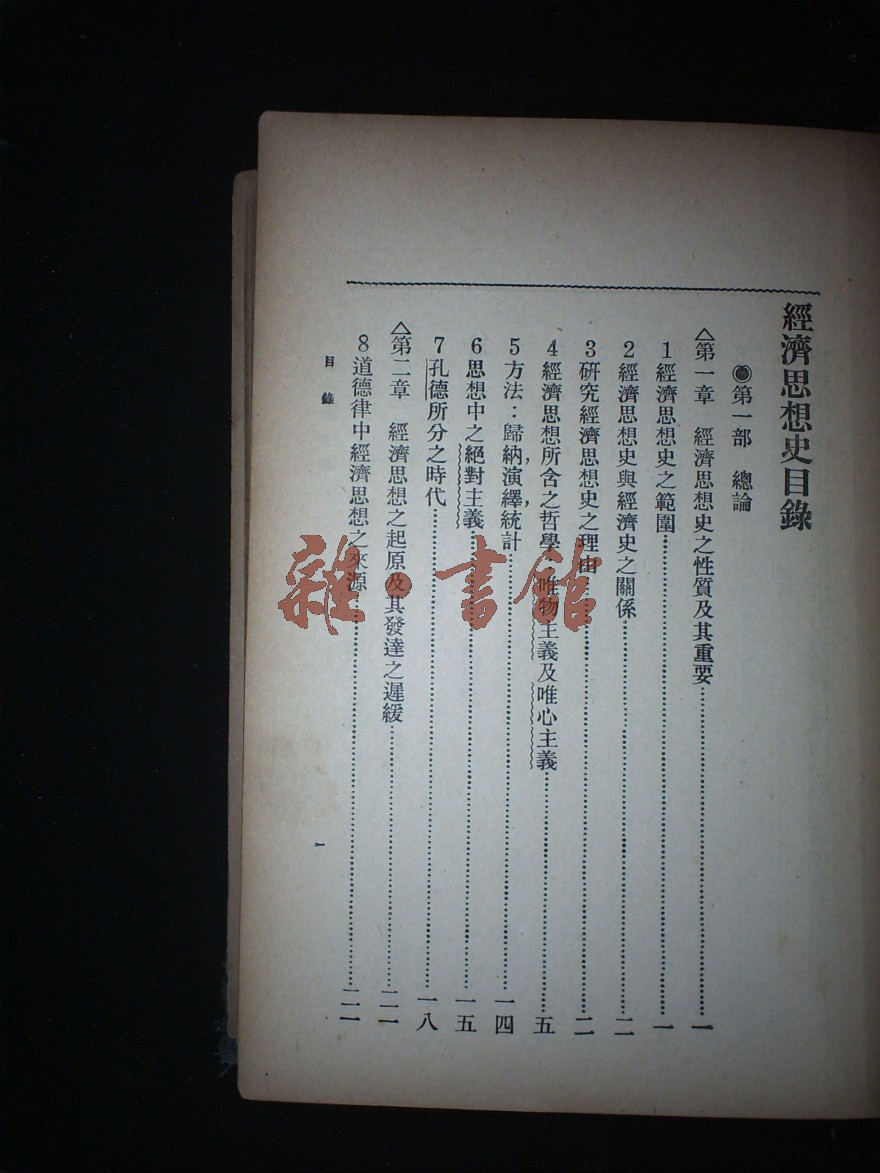 經濟思想史目錄
●第一部 總論
△第一章 經濟思想史之性質及其重要……一
1 經濟思想史之範圍……一
2 經濟思想史與經濟史之關係……二
3 研究經濟思想史之理由……二
4 經濟思想所含之哲學，唯物主義及唯心主義……五
5 方法：歸納，演繹，統計……一四
6 思想中之絕對主義……一五
7 孔德所分之時代……一八
△第二章 經濟思想之起原及其發達之遲緩……二一
8 道德律中經濟思想之來源……二一
目錄
一
雜·書館